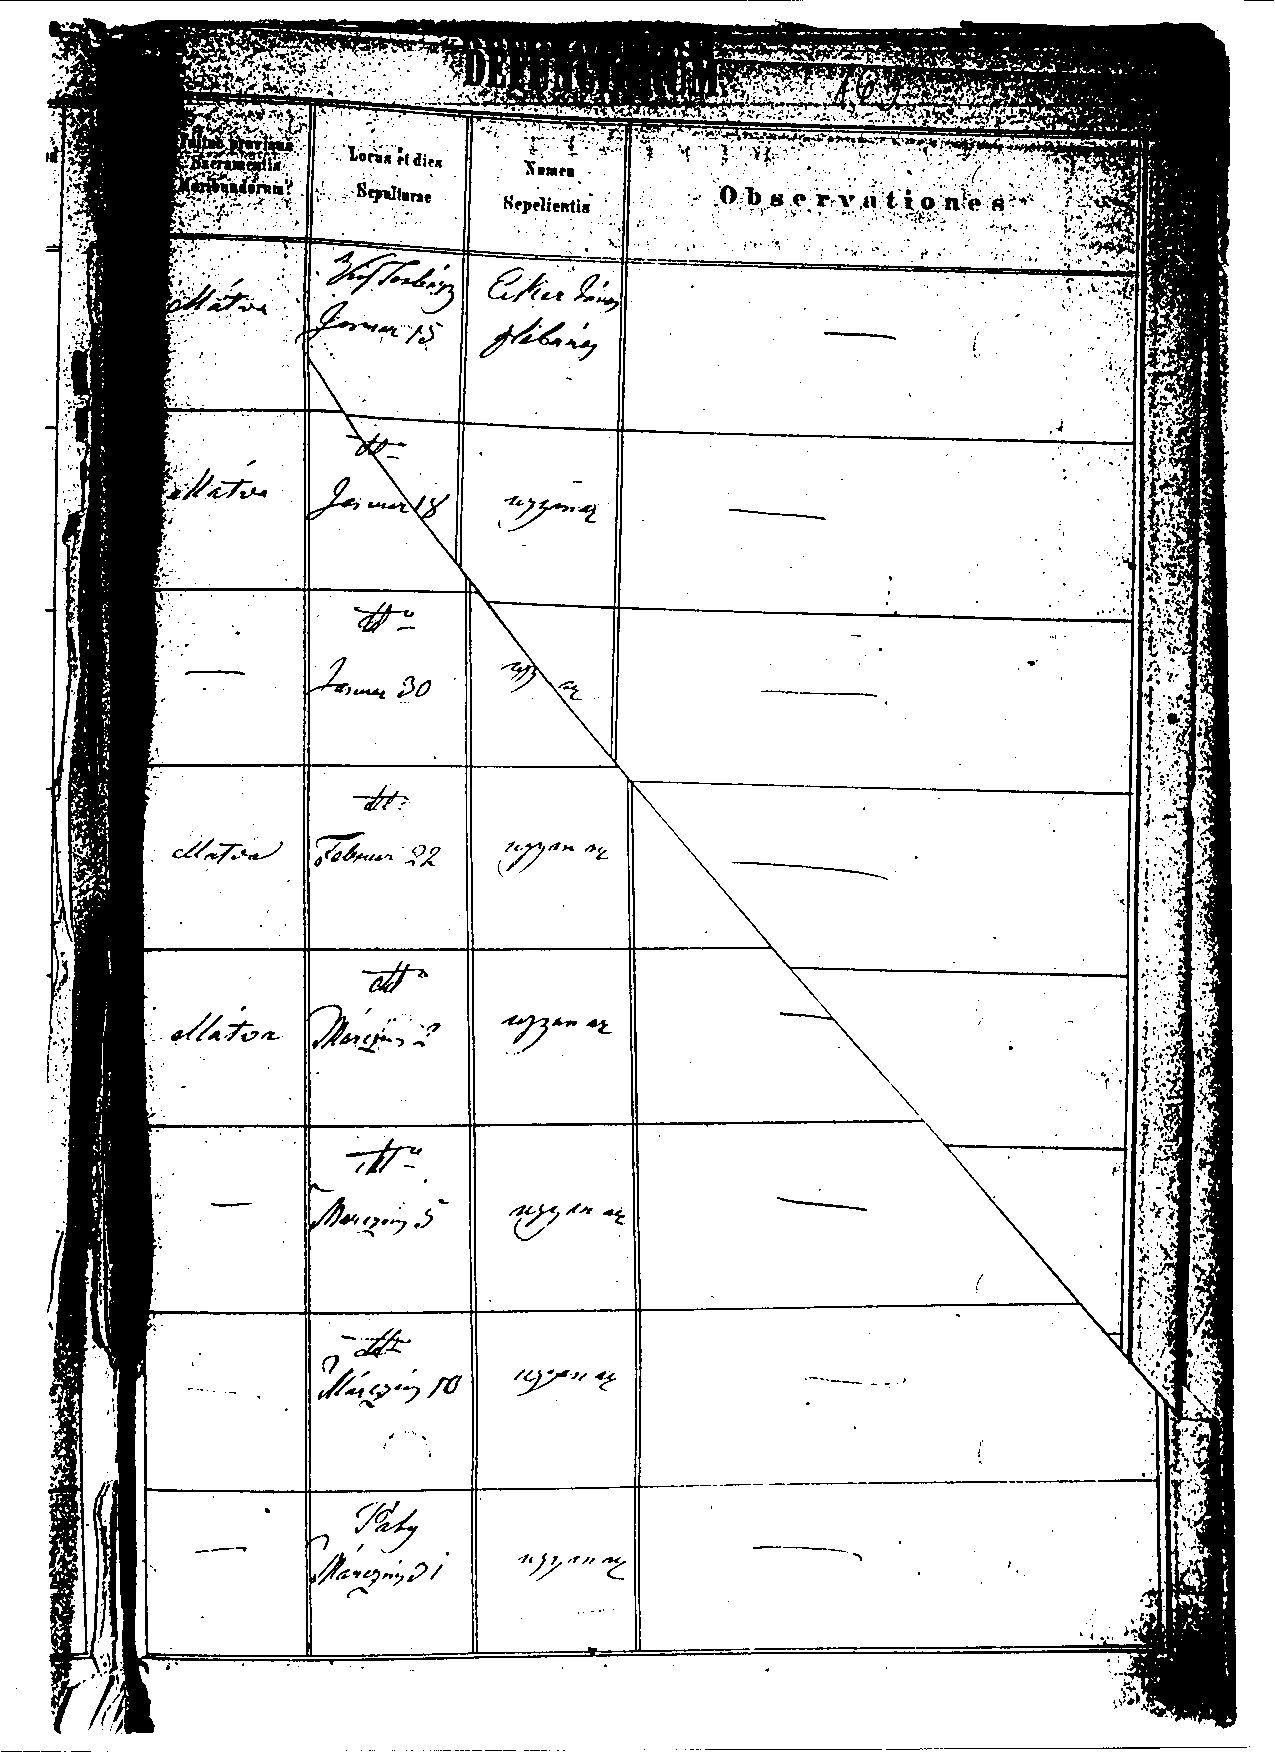 DEFUNCTORUM
169
Sacramentis
Moribundorum?
Locus et dies
Sepulturae
Nomen
Sepelientis
Observationes
Mátra
Januar 15
Eiker János
plébános
Mátra
dtto
Januar 18
ugyanaz
dtto
Januar 30
ugy az
Mátra
dtto
Februar 22
ugyan az
Mátra
dtto
Márczius 2
ugyan az
dtto
Márczius 5
ugyan az
dtto
Márczius 10
ugyan az
Páty
Márczius 31
ugyan az